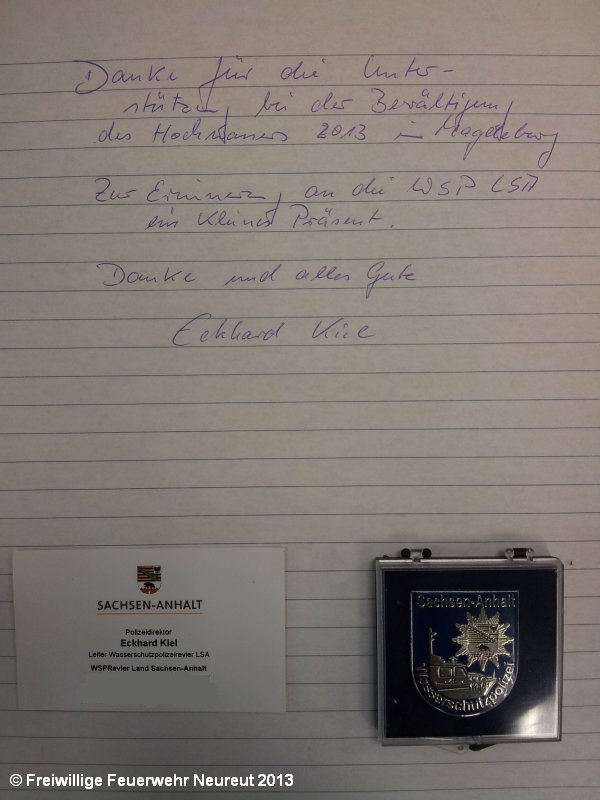 Danke für die Unter-
stützung bei der Bewältigung
des Hochwassers 2013 in Magdeburg
Zur Erinnerung an die WSP LSA
ein kleines Präsent.
Danke und alles Gute
Eckhard Kiel
SACHSEN-ANHALT
Polizeidirektor
Eckhard Kiel
Leiter Wasserschutzpolizeirevier LSA
WSPRevier Land Sachsen-Anhalt
Sachsen-Anhalt
Wasserschutzpolizei
© Freiwillige Feuerwehr Neureut 2013